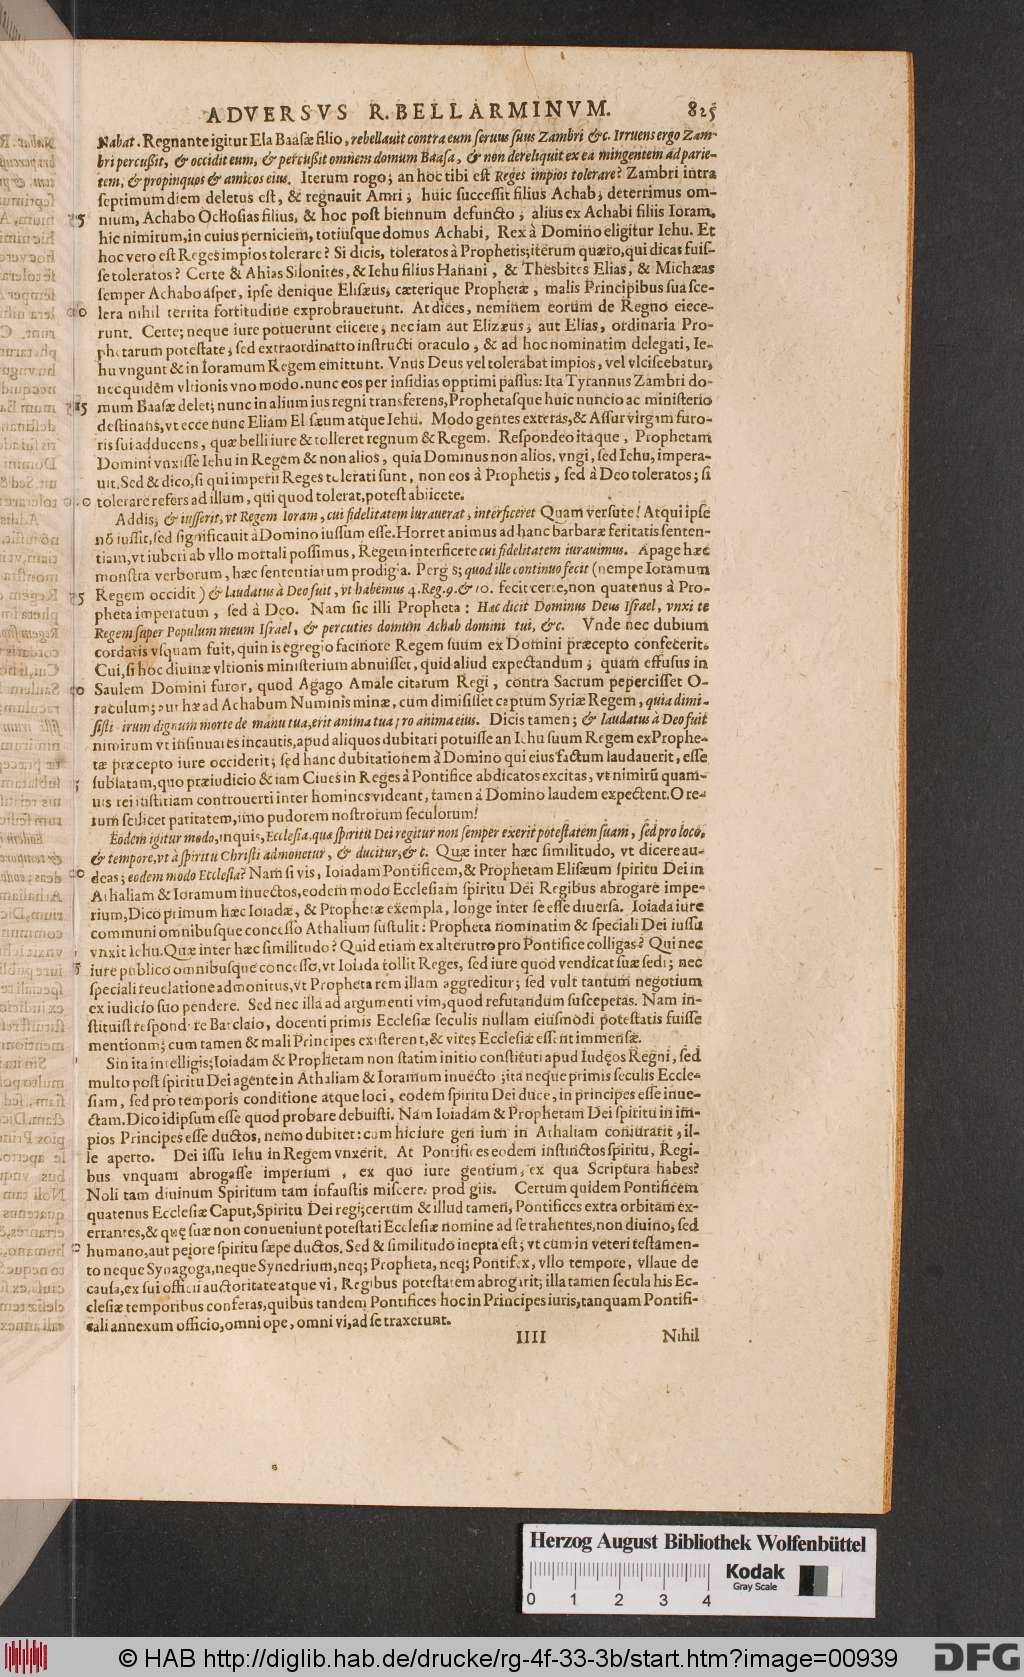 ADVERSVS R. BELLARMINVM. 825
Nabat. Regnante igitur Ela Baasæ filio, rebellauit contra eum seruus suus Zambri &c. Irruens ergo Zam-
bri percußit, & occidit eum, & percußit omnem domum Baasa, & non dereliquit ex ea mingentem ad parie-
tem, & propinquos & amicos eius. Iterum rogo; an hoc tibi est Reges impios tolerare? Zambri intra
septimum diem deletus est, & regnauit Amri; huic successit filius Achab; deterrimus om-
nium, Achabo Ochosias filius, & hoc post biennum defuncto; alius ex Achabi filiis Ioram,
hic nimirum, in cuius perniciem, totiusque domus Achabi, Rex à Domino eligitur Iehu. Et
hoc vero est Reges impios tolerare? Si dicis, toleratos à Prophetis; iterum quæro, qui dicas fuis-
se toleratos? Certe & Ahias Silonites, & Iehu filius Hanani, & Thesbites Elias, & Michæas
semper Achabo asper, ipse denique Elisæus, cæterique Prophetæ, malis Principibus sua sce-
lera nihil territa fortitudine exprobrauerunt. At dices, neminem eorum de Regno eiece-
runt. Certe; neque iure potuerunt eiicere; nec iam aut Elizæus; aut Elias, ordinaria Pro-
phetarum potestate; sed extraordinatto instructi oraculo, & ad hoc nominatim delegati, Ie-
hu vngunt & in Ioramum Regem emittunt. Vnus Deus vel tolerabat impios, vel vlciscebatur,
nec quidem vltionis vno modo. nunc eos per insidias opprimi passus: Ita Tyrannus Zambri do-
mum Baasæ delet; nunc in alium ius regni transferens, Prophetasque huic nuncio ac ministerio
destinans, vt ecce nunc Eliam El sæum atque Iehu. Modo gentes exteras, & Assur virgam furo-
ris sui adducens, quæ belli iure & tolleret regnum & Regem. Respondeo itaque, Prophetam
Domini vnxisse Iehu in Regem & non alios, quia Dominus non alios, vngi, sed Iehu, impera-
uit. Sed & dico, si qui imperii Reges tolerati sunt, non eos à Prophetis, sed à Deo toleratos; si
tolerare refers ad illum, qui quod tolerat, potest abiicete.
Addis; & iusserit, vt Regem Ioram, cui fidelitatem iurauerat, interficeret Quam versute! Atqui ipse
nõ iussit, sed significauit à Domino iussum esse. Horret animus ad hanc barbaræ feritatis senten-
tiam, vt iuberi ab vllo mortali possimus, Regem interficere cui fidelitatem iurauimus. Apage hæc
monstra verborum, hæc sententiarum prodigia. Perg s; quod ille continuo fecit (nempe Ioramum
Regem occidit) & laudatus à Deo fuit, vt habemus 4. Reg. 9. & 10. fecit certe, non quatenus à Pro-
pheta imperatum, sed à Deo. Nam sic illi Propheta: Hæc dicit Dominus Deus Israel, vnxi te
Regem super Populum meum Israel, & percuties domum Achab domini tui, &c. Vnde nec dubium
cordatis vsquam fuit, quin is egregio facinore Regem suum ex Domini præcepto confecerit.
Cui, si hoc diuinæ vltionis ministerium abnuisset, quid aliud expectandum; quam effusus in
Saulem Domini furor, quod Agago Amale citarum Regi, contra Sacrum pepercisset O-
raculum; aut hæ ad Achabum Numinis minæ, cum dimisisset captum Syriæ Regem, quia dimi-
sisti irum dignum morte de manu tua, erit anima tua; ro anima eius. Dicis tamen; & laudatus à Deo fuit
nimirum vt insinuares incautis, apud aliquos dubitari potuisse an Iehu suum Regem ex Prophe-
tæ præcepto iure occiderit; sed hanc dubitationem à Domino qui eius factum laudauerit, esse
sublatam, quo præiudicio & iam Ciues in Reges à Pontifice abdicatos excitas, vt nimirũ quam-
uis rei iustitiam controuerti inter homines videant, tamen à Domino laudem expectent. O re-
rum scilicet paritatem, imo pudorem nostrorum seculorum!
Eodem igitur modo, inquis, Ecclesia, quæ spiritu Dei regitur non semper exerit potestatem suam, sed pro loco,
& tempore, vt à spiritu Christi admonetur, & ducitur, & c. Quæ inter hæc similitudo, vt dicere au-
deas; eodem modo Ecclesia? Nam si vis, Ioiadam Pontificem, & Prophetam Elisæum spiritu Dei in
Athaliam & Ioramum inuectos, eodem modo Ecclesiam spiritu Dei Regibus abrogare impe-
rium, Dico primum hæc Ioiadæ, & Prophetæ exempla, longe inter se esse diuersa. Ioiada iure
communi omnibusque concesso Athalium sustulit: Propheta nominatim & speciali Dei iussu
vnxit Iehu. Quæ inter hæc similitudo? Quid etiam ex alterutro pro Pontifice colligas? Qui nec
iure publico omnibusque concesso, vt Ioiada tollit Reges, sed iure quod vendicat suæ sedi; nec
speciali reuelatione admonitus, vt Propheta rem illam aggreditur; sed vult tantum negotium
ex iudicio suo pendere. Sed nec illa ad argumenti vim, quod refutandum susceperas. Nam in-
stituist respond re Barclaio, docenti primis Ecclesiæ seculis nullam eiusmodi potestatis fuisse
mentionm; cum tamen & mali Principes existerent, & vires Ecclesiæ essent immensæ.
Sin ita intelligis; Ioiadam & Prophetam non statim initio constituti apud Iudęos Regni, sed
multo post spiritu Dei agente in Athaliam & Ioramum inuecto ; ita neque primis seculis Eccle-
siam, sed pro temporis conditione atque loci, eodem spiritu Dei duce, in principes esse inue-
ctam. Dico id ipsum esse quod probare debuisti. Nam Ioiadam & Prophetam Dei spiritu in im-
pios Principes esse ductos, nemo dubitet: cum hic iure gen ium in Athaliam coniurarit, il-
le aperto. Dei issu Iehu in Regem vnxerit. At Pontifices eodem instinctos spiritu, Regi-
bus vnquam abrogasse imperium, ex quo iure gentium, ex qua Scriptura habes?
Noli tam diuinum Spiritum tam infaustis miscere prod giis. Certum quidem Pontificem
quatenus Ecclesiæ Caput, Spiritu Dei regi; certum & illud tamen, Pontifices extra orbitam ex-
errantes, & quę suæ non conueniunt potestati Ecclesiæ nomine ad se trahentes, non diuino, sed
humano, aut peiore spiritu sæpe ductos. Sed & similitudo inepta est; vt cum in veteri testamen-
to neque Synagoga, neque Synedrium, neq; Propheta, neq; Pontifex, vllo tempore, vllaue de
causa, ex sui officii auctoritate atque vi, Regibus potestatem abrogarit; illa tamen secula his Ec-
clesiæ temporibus conferas, quibus tandem Pontifices hoc in Principes iuris, tanquam Pontifi-
cali annexum officio, omni ope, omni vi, ad se traxerunt.
IIII Nihil
Herzog August Bibliothek Wolfenbüttel
Kodak
Gray Scale
0 1 2 3 4
© HAB http://diglib.hab.de/drucke/rg-4f-33-3b/start.htm?image=00939
DFG